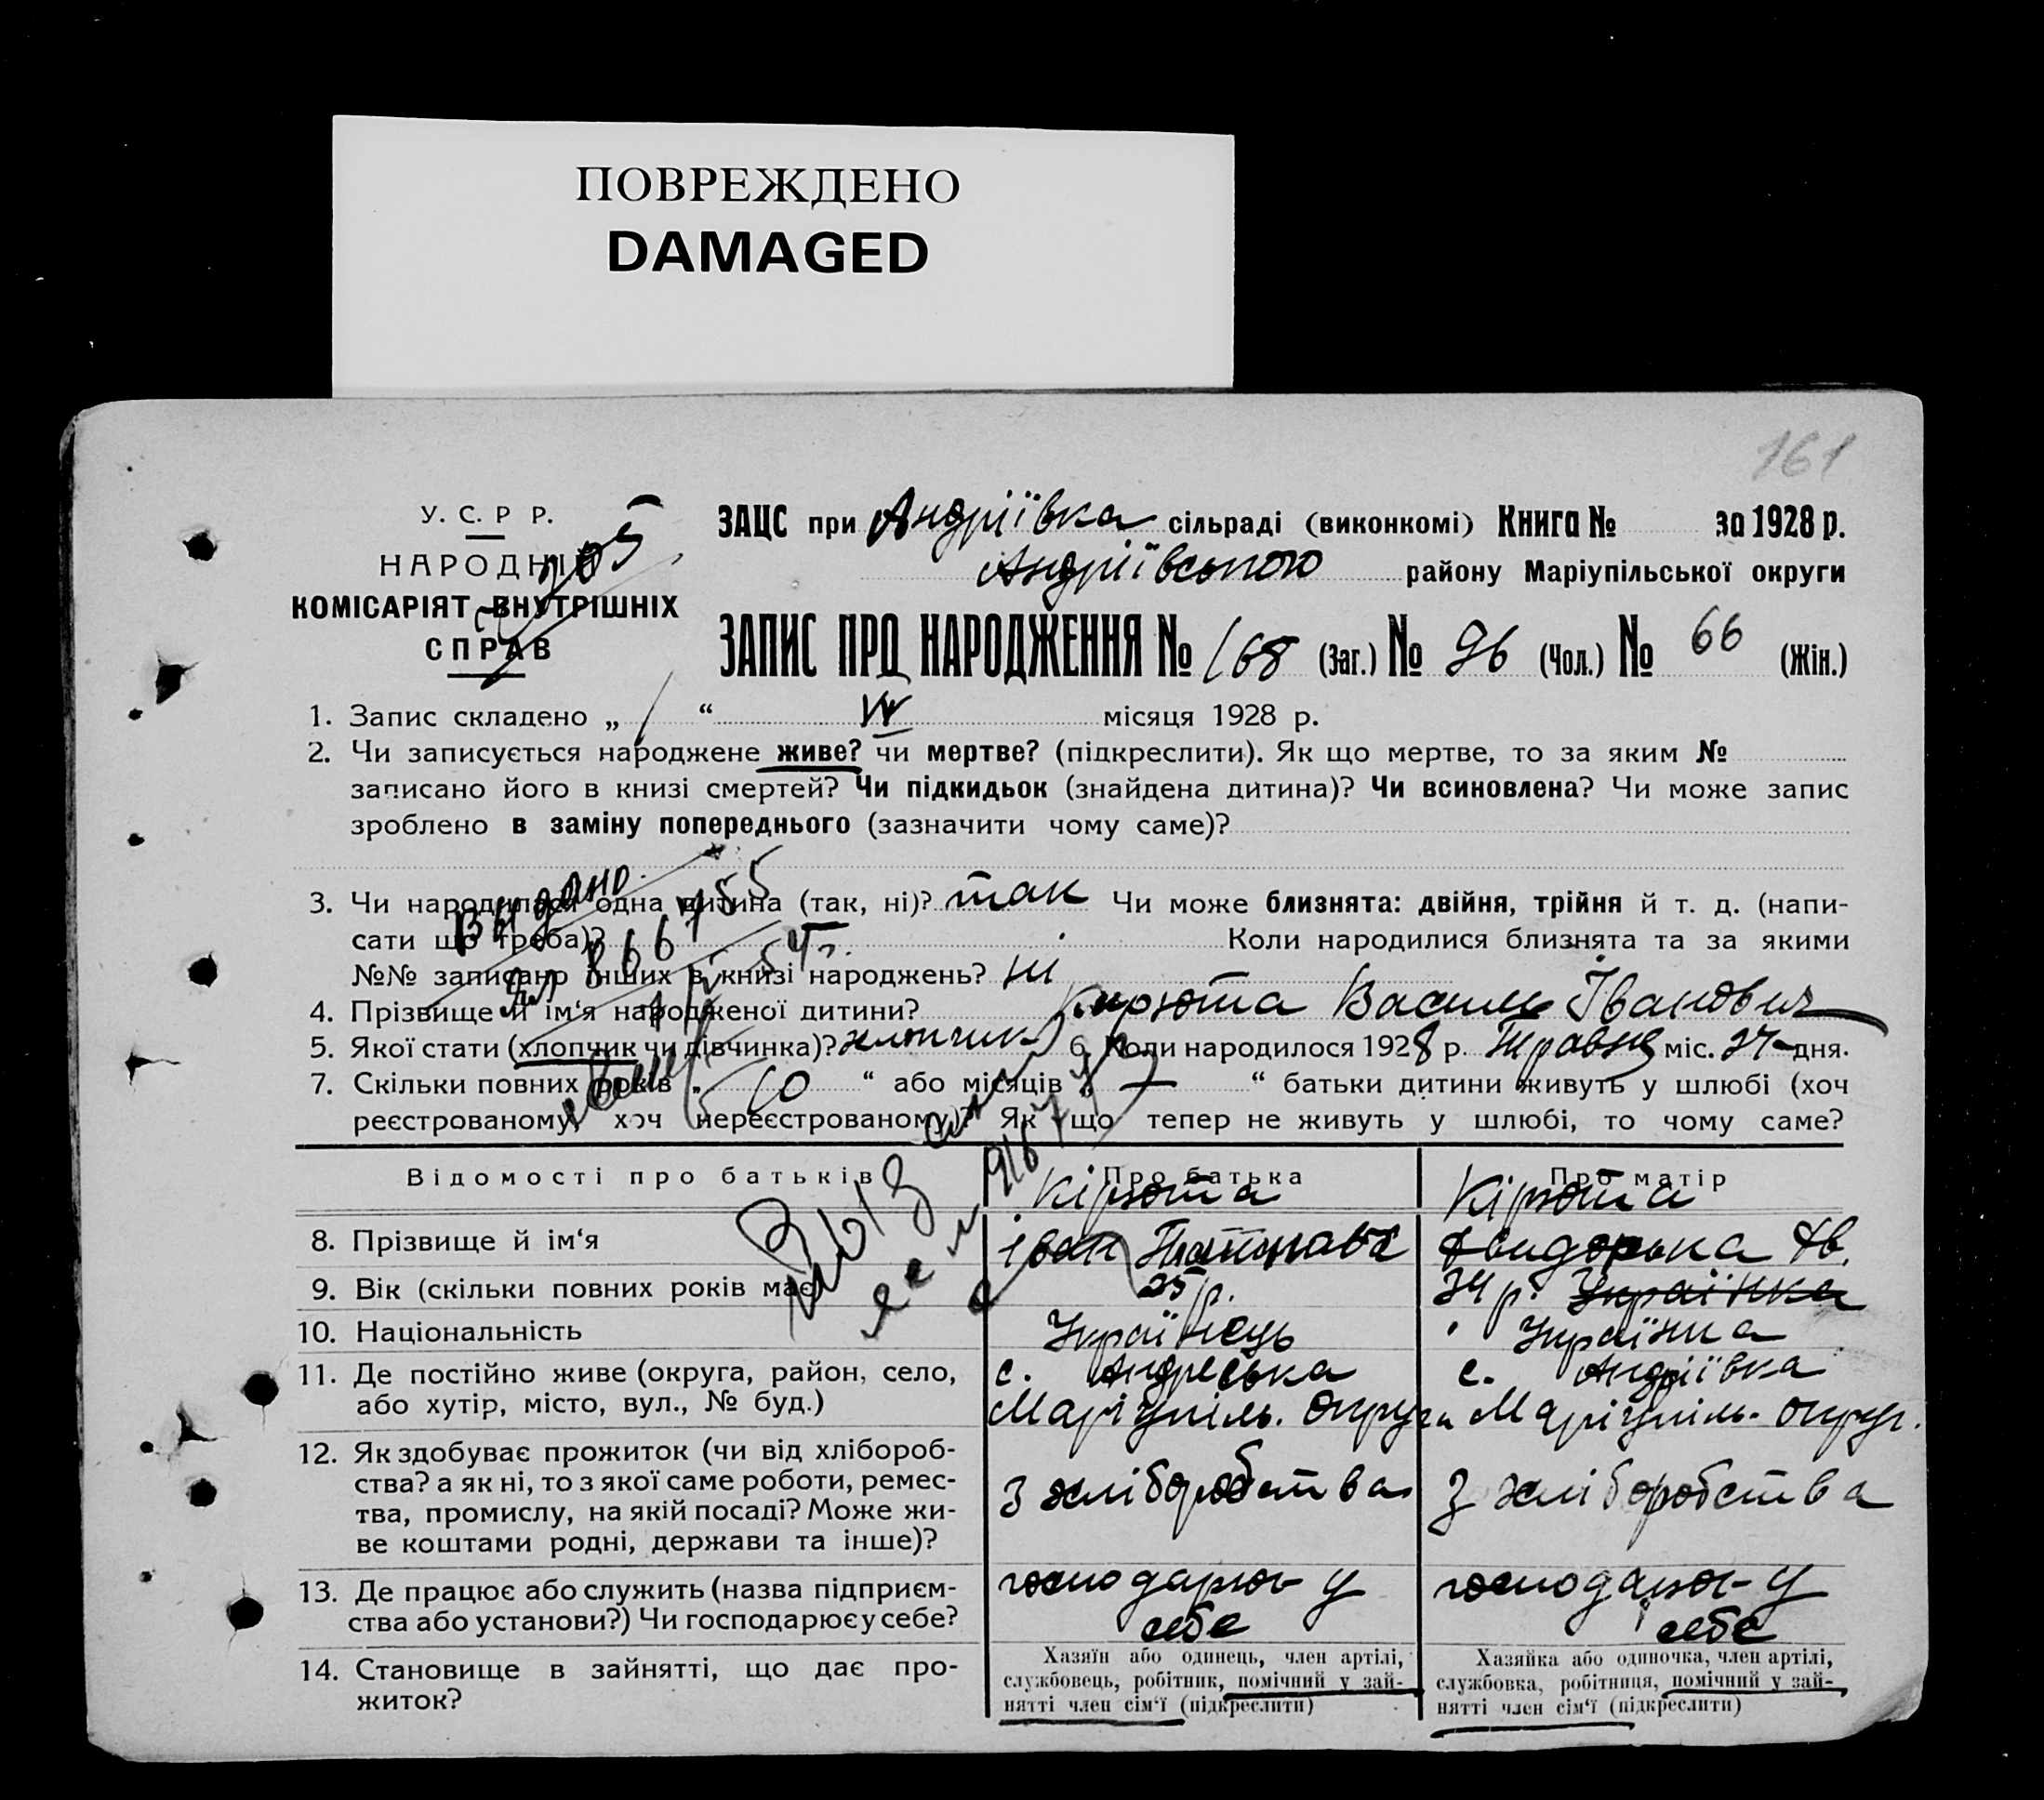 ПОВРЕЖДЕНО
DAMAGED
161
У. С. Р Р.
НАРОДНІЙ
КОМІСАРІЯТ ВНУТРІШНІХ
СПРАВ
ЗАЦС при Андріївка сільраді (виконкомі) Книга № за 1928 р.
Андріївського району Маріупільської округи
ЗАПИС ПРО НАРОДЖЕННЯ № 168 (Заг.) № 96 (Чол.) № 66 (Жін.)
1. Запис складено „ 1 “ VI місяця 1928 р.
2. Чи записується народжене живе? чи мертве? (підкреслити). Як що мертве, то за яким №
записано його в книзі смертей? Чи підкидьок (знайдена дитина)? Чи всиновлена? Чи може запис
зроблено в заміну попереднього (зазначити чому саме)?
3. Чи народилася одна дитина (так, ні)? так Чи може близнята: двійня, трійня й т. д. (напи-
сати що треба)? Коли народилися близнята та за якими
№№ записано інших в книзі народжень? ні
4. Прізвище й ім‘я народженої дитини? Кирюта Василь Іванович
5. Якої стати (хлопчик чи дівчинка)? хлопчик 6. Коли народилося 1928 р. Травня міс. 24 дня.
7. Скільки повних років „ 10 “ або місяців „ — “ батьки дитини живуть у шлюбі (хоч
реєстрованому, хоч нереєстрованому)? Як що тепер не живуть у шлюбі, то чому саме?
Видано
866755
Відомості про батьків Про батька Про матір
8. Прізвище й ім‘я Кірюта Іван Кірюта
9. Вік (скільки повних років має) 25 р. 34 р. Українка
10. Національність Українець Українка
11. Де постійно живе (округа, район, село, с. Андреевка с. Андріївка
або хутір, місто, вул., № буд.) Маріупіль. Округи Маріупіль. округ.
12. Як здобуває прожиток (чи від хлібороб-
ства? а як ні, то з якої саме роботи, ремес- з хліборобства з хліборобства
тва, промислу, на якій посаді? Може жи-
ве коштами родні, держави та інше)?
13. Де працює або служить (назва підприєм- господарює у господарює у
ства або установи?) Чи господарює у себе? себе себе
14. Становище в зайнятті, що дає про-
житок?
Хазяїн або одинець, член артілі,
службовець, робітник, помічний у зай-
нятті член сім‘ї (підкреслити)
Хазяйка або одиночка, член артілі,
службовка, робітниця, помічний у зай-
нятті член сім‘ї (підкреслити)